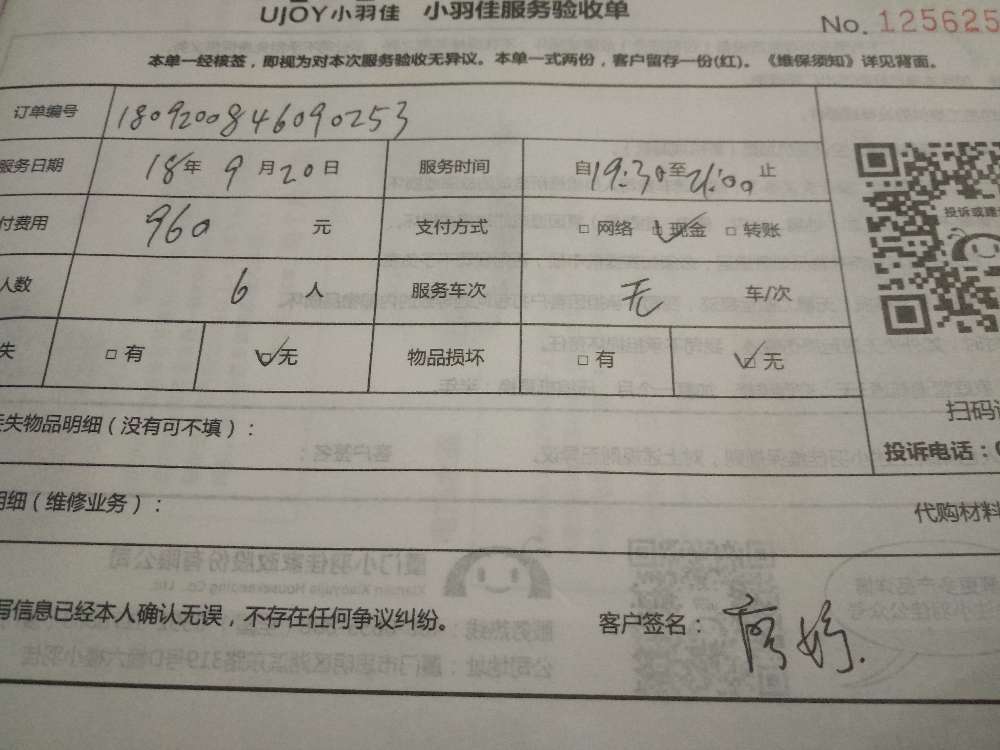 UJOY小羽佳 小羽佳服务验收单
No. 125625
本单一经核签，即视为对本次服务验收无异议。本单一式两份，客户留存一份(红)。《维保须知》详见背面。
订单编号 1809200846090253
服务日期 18年 9月20日 服务时间 自19:30至21:00止
付费用 960 元 支付方式 □网络 ☑现金 □转账
人数 6 人 服务车次 无 车/次
失 □有 ☑无 物品损坏 □有 ☑无
投诉或建
扫码
投诉电话：
失物品明细（没有可不填）：
明细（维修业务）： 代购材料
写信息已经本人确认无误，不存在任何争议纠纷。 客户签名：